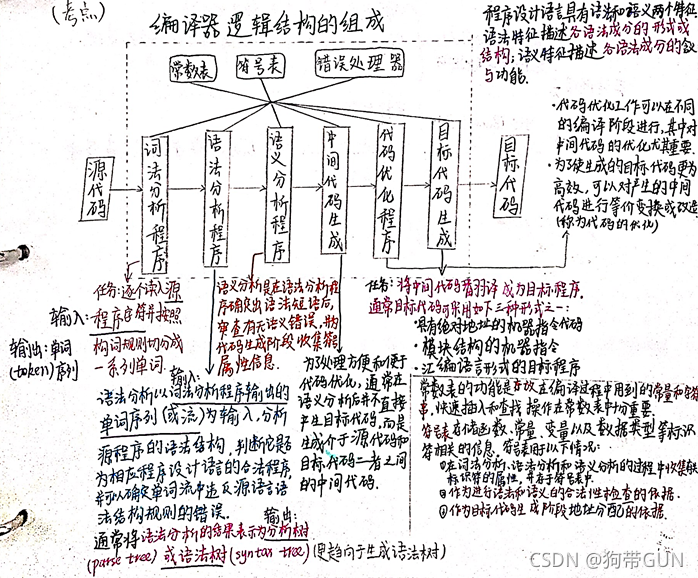 (考点)
编译器逻辑结构的组成
程序设计语言具有语法和语义两个特征
语法特征描述各语法成分的形式或
结构;语义特征描述各语法成分的含义
与功能.
常数表
符号表
错误处理器
源代码
词法分析程序
语法分析程序
语义分析程序
中间代码生成
代码优化程序
目标代码生成
目标代码
·代码优化工作可以在不同
的编译阶段进行,其中对
中间代码的优化尤其重要.
·为了使生成的目标代码更为
高效,可以对产生的中间
代码进行等价变换或改造
(称为代码的优化)
任务:逐个读入源
输入:程序字符并按照
构词规则切分成
一系列单词.
输出:单词
(token)序列
语义分析是在语法分析程
序确定出语法短语后,
审查有无语义错误,并为
代码生成阶段收集类
属性信息.
任务:将中间代码翻译成为目标程序.
通常目标代码可采用如下三种形式之一:
·具有绝对地址的机器指令代码
·模块结构的机器指令
·汇编语言形式的目标程序
输入:
语法分析以词法分析程序输出的
单词序列(或流)为输入,分析
源程序的语法结构,判断它是否
为相应程序设计语言的合法程序,
并可以确定单词流中违反源语言语
法结构规则的错误.
输出:
通常将语法分析的结果表示为分析树
(parse tree)或语法树(syntax tree)(更趋向于生成语法树)
为了处理方便和便于
代码优化,通常在
语义分析后并不直接
产生目标代码,而是
生成介于源代码和
目标代码二者之间
的中间代码.
常数表的功能是存放在编译过程中用到的常量和字符
串,快速插入和查找操作在常数表中十分重要.
符号表存储函数、常量、变量以及数据类型等标识
符相关的信息,符号表用于以下情况:
①在词法分析、语法分析和语义分析的过程中收集
标识符的属性,并存于符号表中.
②作为进行语法和语义的合法性检查的依据.
③作为目标代码生成阶段地址分配的依据.
CSDN @狗带GUN